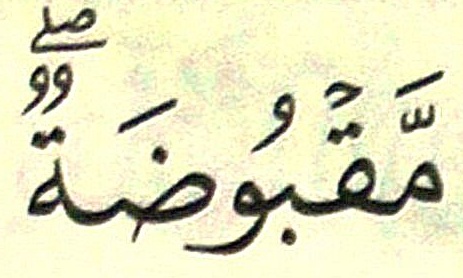 مَّقۡبُوضَةٞۖ